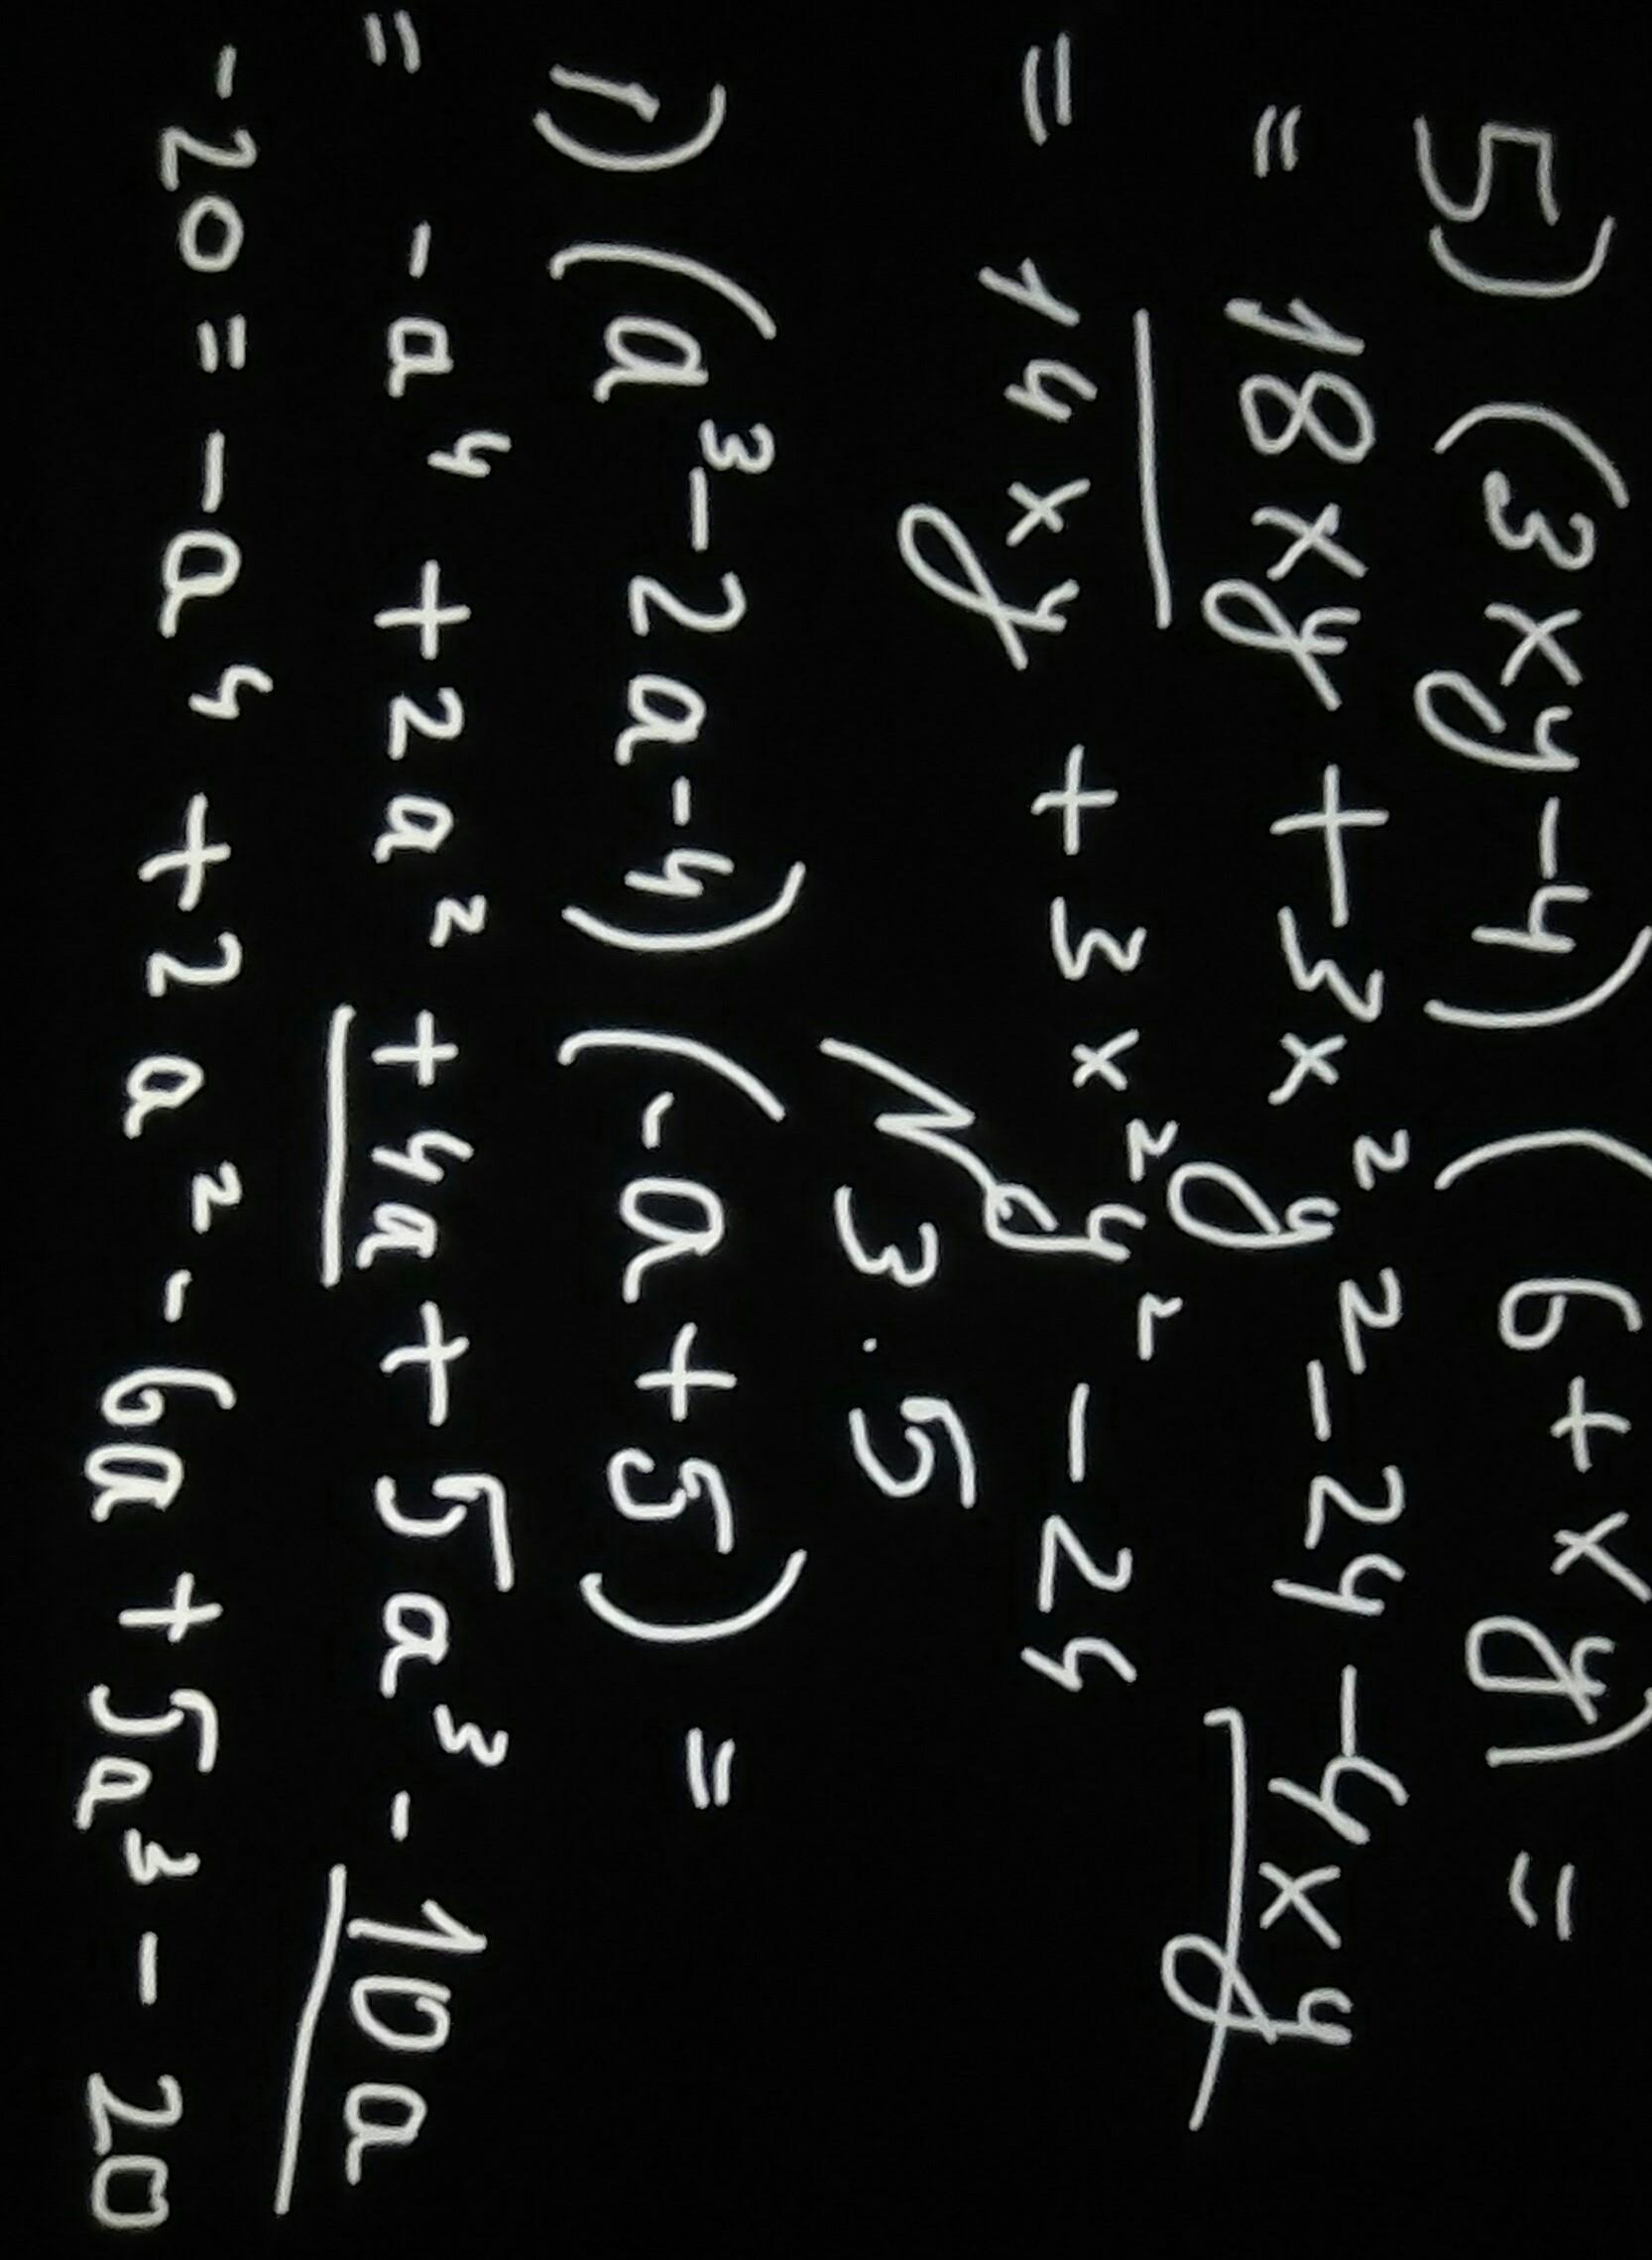 5) (3xy-4) (6+xy) =
= 18xy + 3x²y² - 24 - 4xy
= 14xy + 3x²y² - 24
№ 3.5
1) (a³-2a-4) (-a+5) =
= -a⁴ + 2a² + 4a + 5a³ - 10a
- 20 = -a⁴ + 2a² - 6a + 5a³ - 20